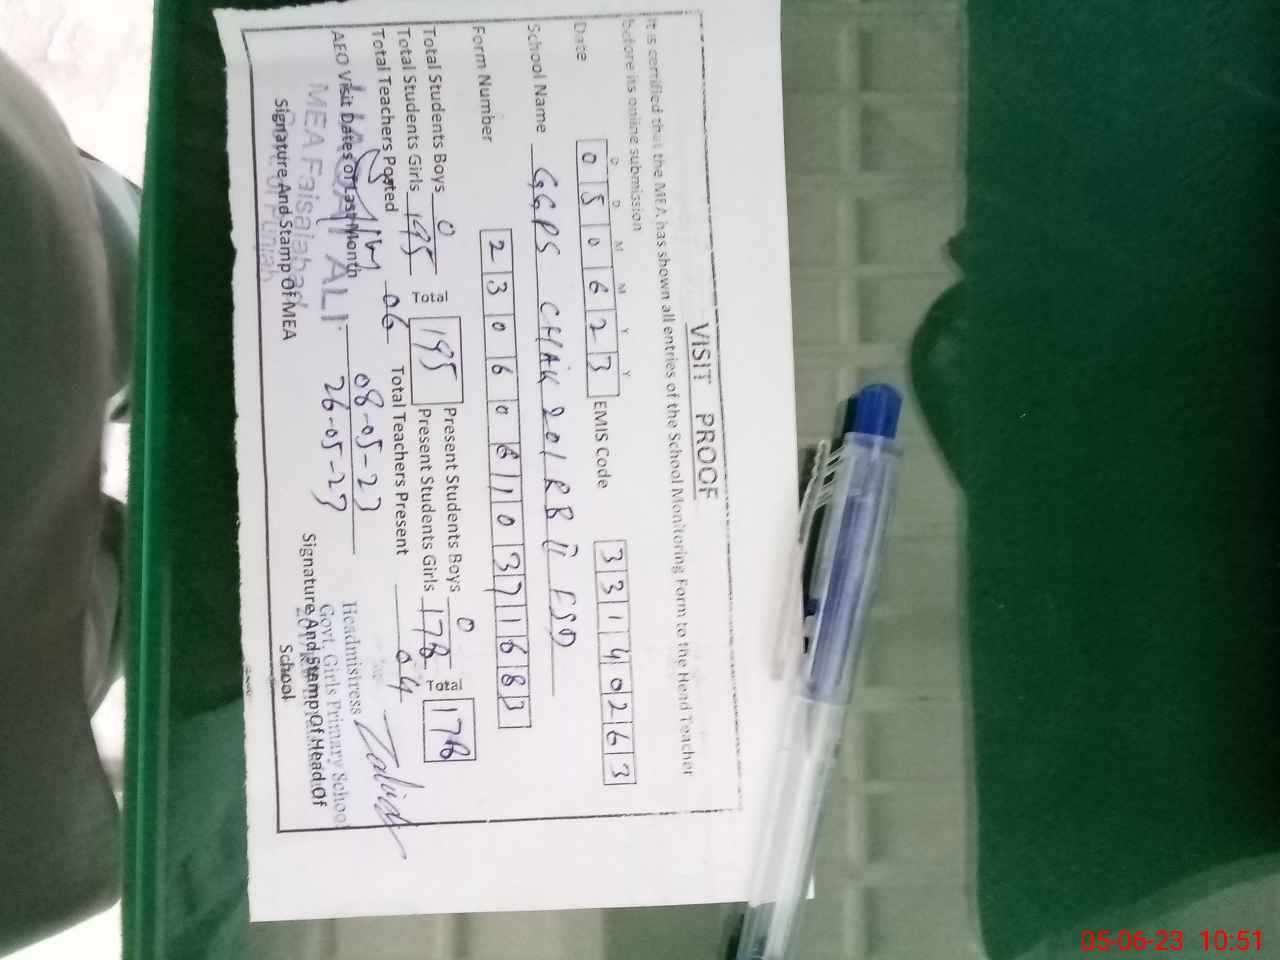 VISIT PROOF
It is certified that the MEA has shown all entries of the School Monitoring Form to the Head Teacher
before its online submission
D D M M Y Y
Date 0 5 0 6 2 3 EMIS Code 3 3 1 4 0 2 6 3
School Name GGPS CHAK 201 RB II FSD
Form Number 2 3 0 6 0 6 1 0 3 7 1 6 8 3
Total Students Boys 0 Present Students Boys 0
Total Students Girls 195 Total 195 Present Students Girls 178 Total 178
Total Teachers Posted 06 Total Teachers Present 04
AEO Visit Dates of Last Month 08-05-23
26-05-23
MEA Faisalabad
Signature And Stamp Of MEA
Headmistress
Govt. Girls Primary School
Signature And Stamp Of Head Of
School
05-06-23 10:51